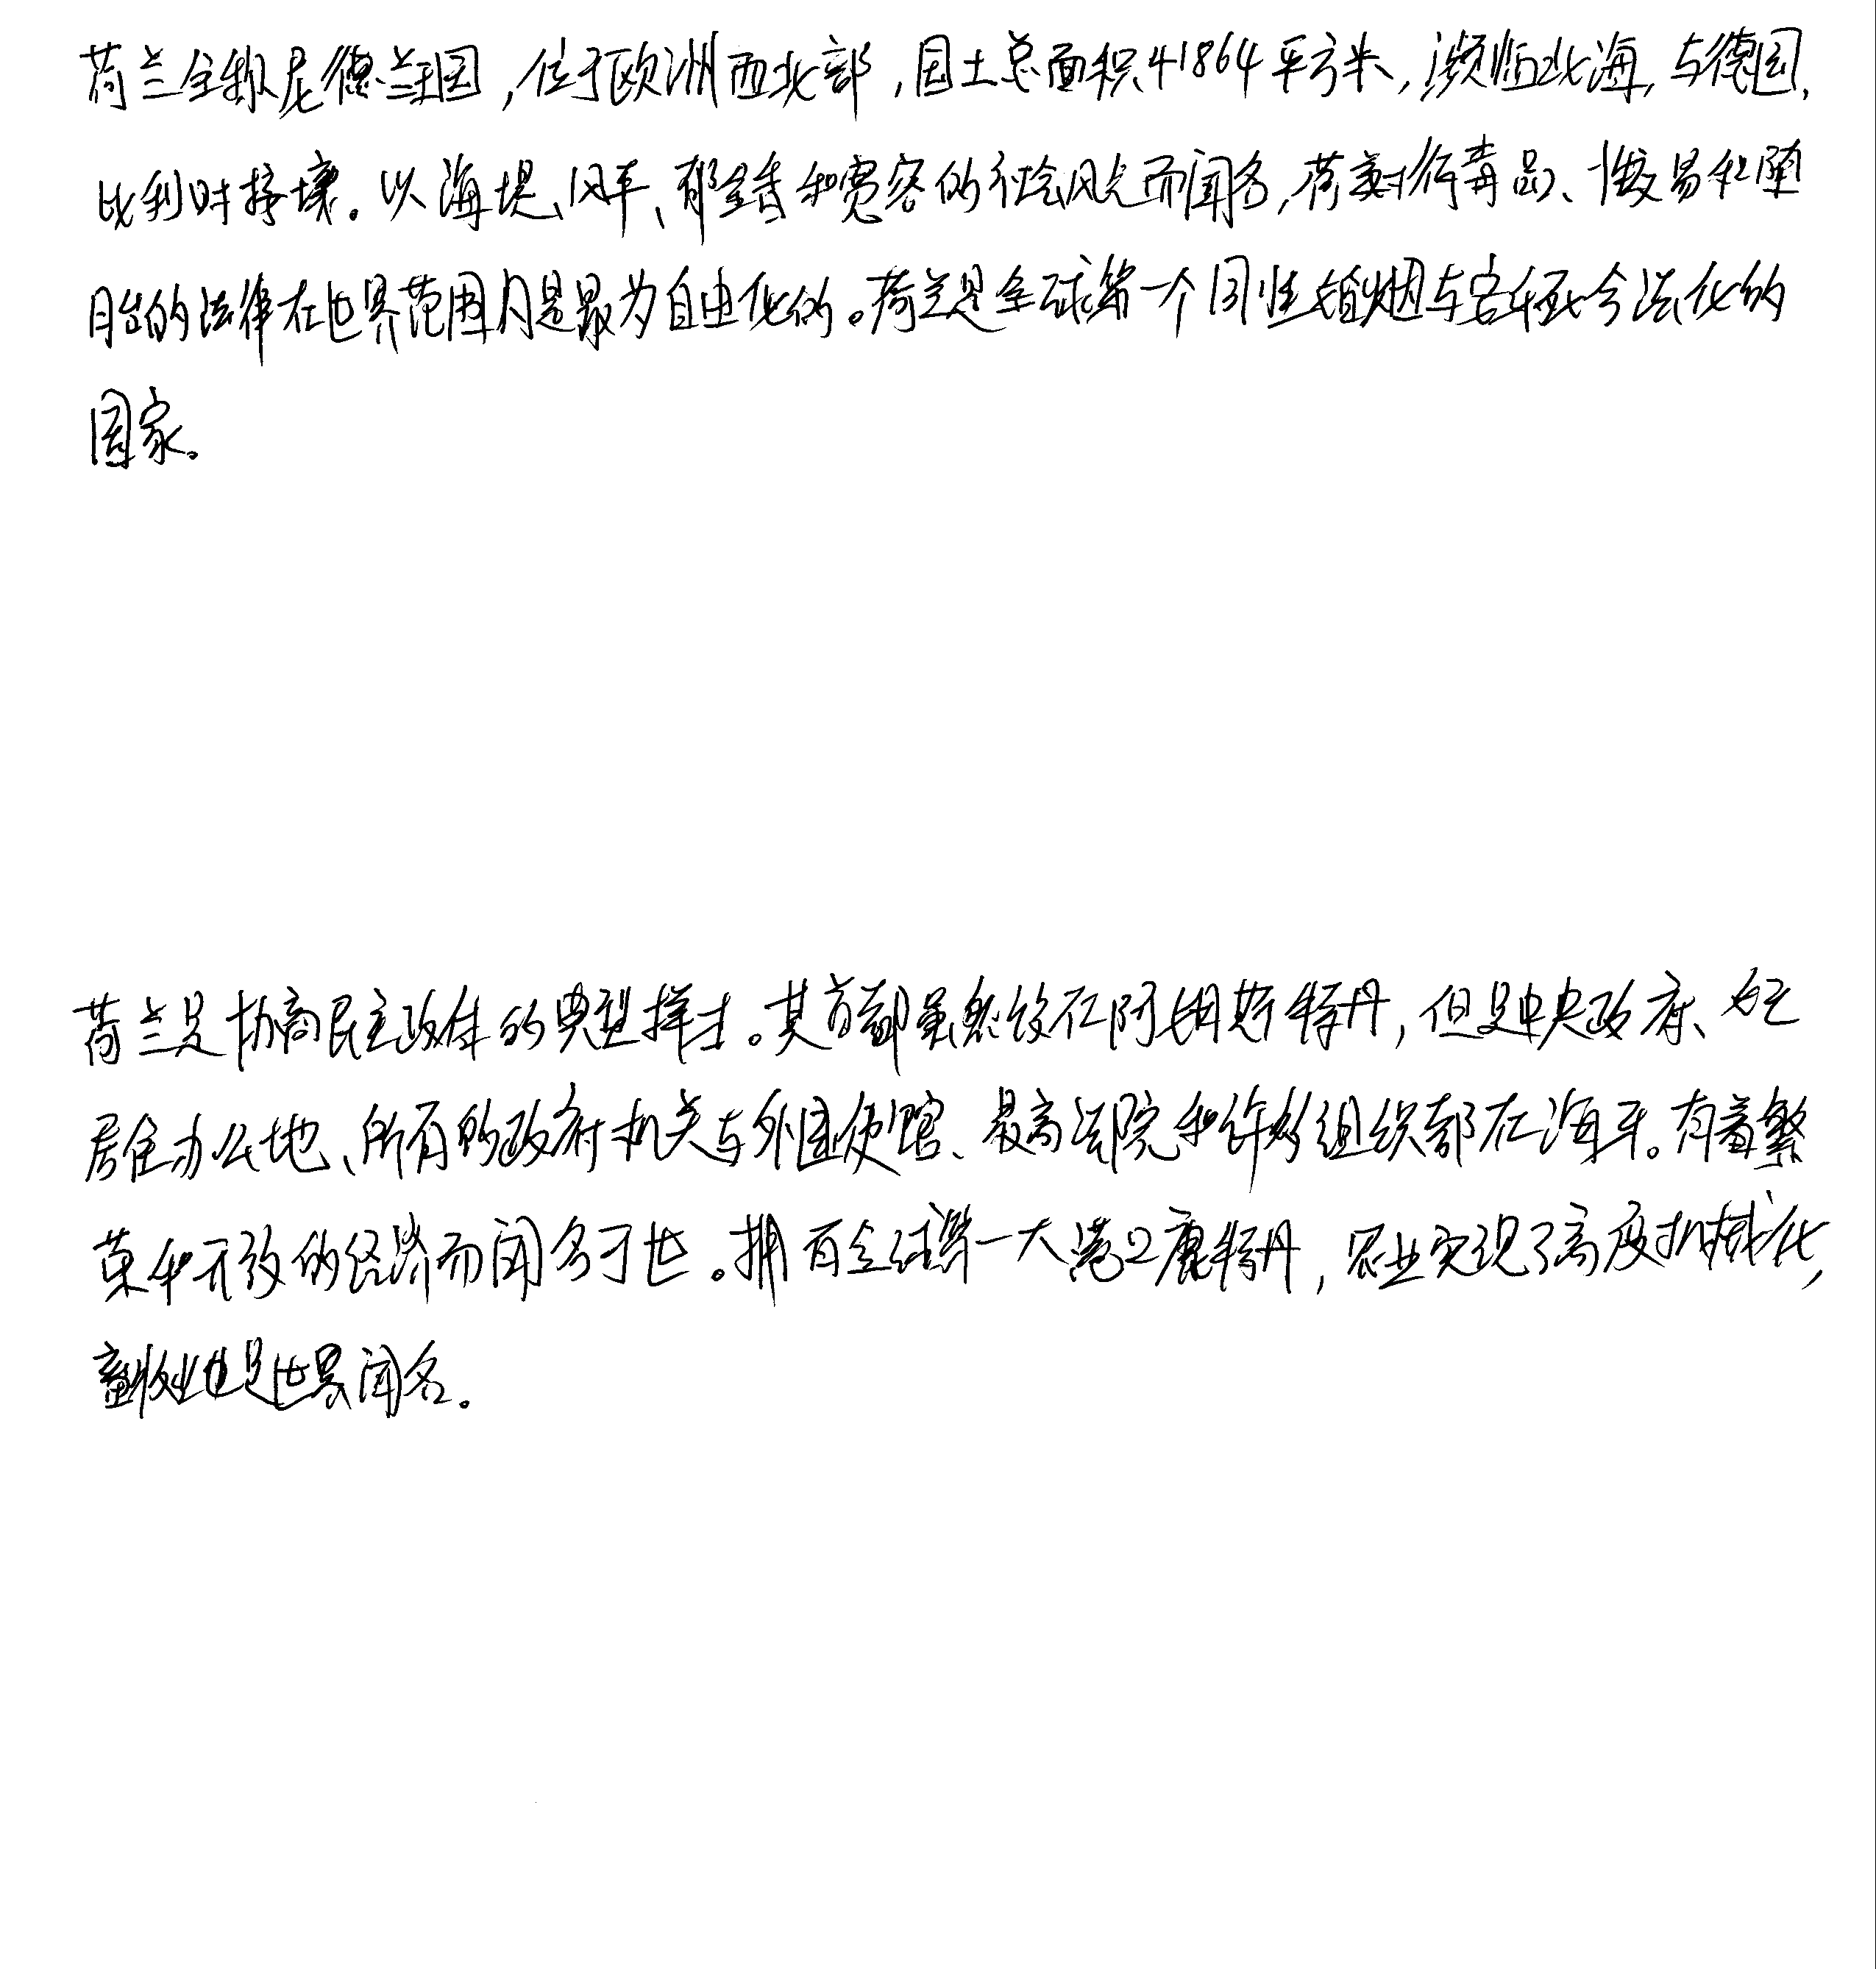 荷兰全称尼德兰王国,位于欧洲西北部,国土总面积41864平方米,濒临北海,与德国,
比利时接壤。以海堤、风车、郁金香和宽容的社会风气而闻名,荷兰对待毒品、性交易和堕
胎的法律在世界范围内是最为自由化的。荷兰是全球第一个同性婚姻与安乐死合法化的
国家。
荷兰是协商民主政体的典型样本。其首都虽然设在阿姆斯特丹,但是中央政府、女王
居住办公地、所有的政府机关与外国使馆、最高法院和许多组织都在海牙。有着繁
荣和开放的经济而闻名于世。拥有全球第一大港口鹿特丹,农业实现了高度机械化,
畜牧业也是世界闻名。